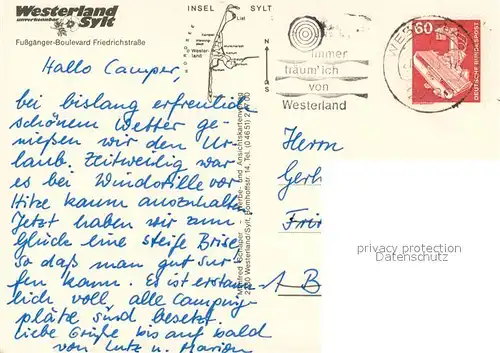 Westerland
unverkennbar Sylt
Fußgänger-Boulevard Friedrichstraße
INSEL SYLT
List
Wester-
land
NORDSEE
N
S
immer
träum'ich
von
Westerland
WES
60
DEUTSCHE BUNDESPOST
Hallo Camper,
bei bislang erfreulich
schönem Wetter ge-
nießen wir den Ur-
laub. Zeitweilig war
es bei Windstille vor
Hitze kaum auszuhalten
Jetzt haben wir zum
Glück eine steife Brise
so daß man gut sur-
fen kann. Es ist erstaun-
lich voll, alle Camping-
plätze sind besetzt.
Liebe Grüße bis auf bald
von Lutz u. Marion
Manfred Schaper - Werbe- und Ansichtskartenverlag
2280 Westerland/Sylt, Bomhoffstr. 14, Tel. (0 46 51) 2
Herrn
Gerh
Frir
A B
privacy protection
Datenschutz